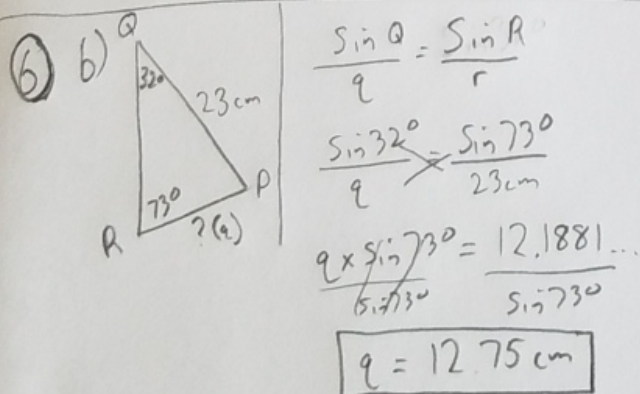 6 b)
Q
32°
23cm
73°
P
R
?(q)
Sin Q / q = Sin R / r
Sin32° / q = Sin73° / 23cm
q x Sin73° / Sin73° = 12.1881... / Sin73°
q = 12.75 cm